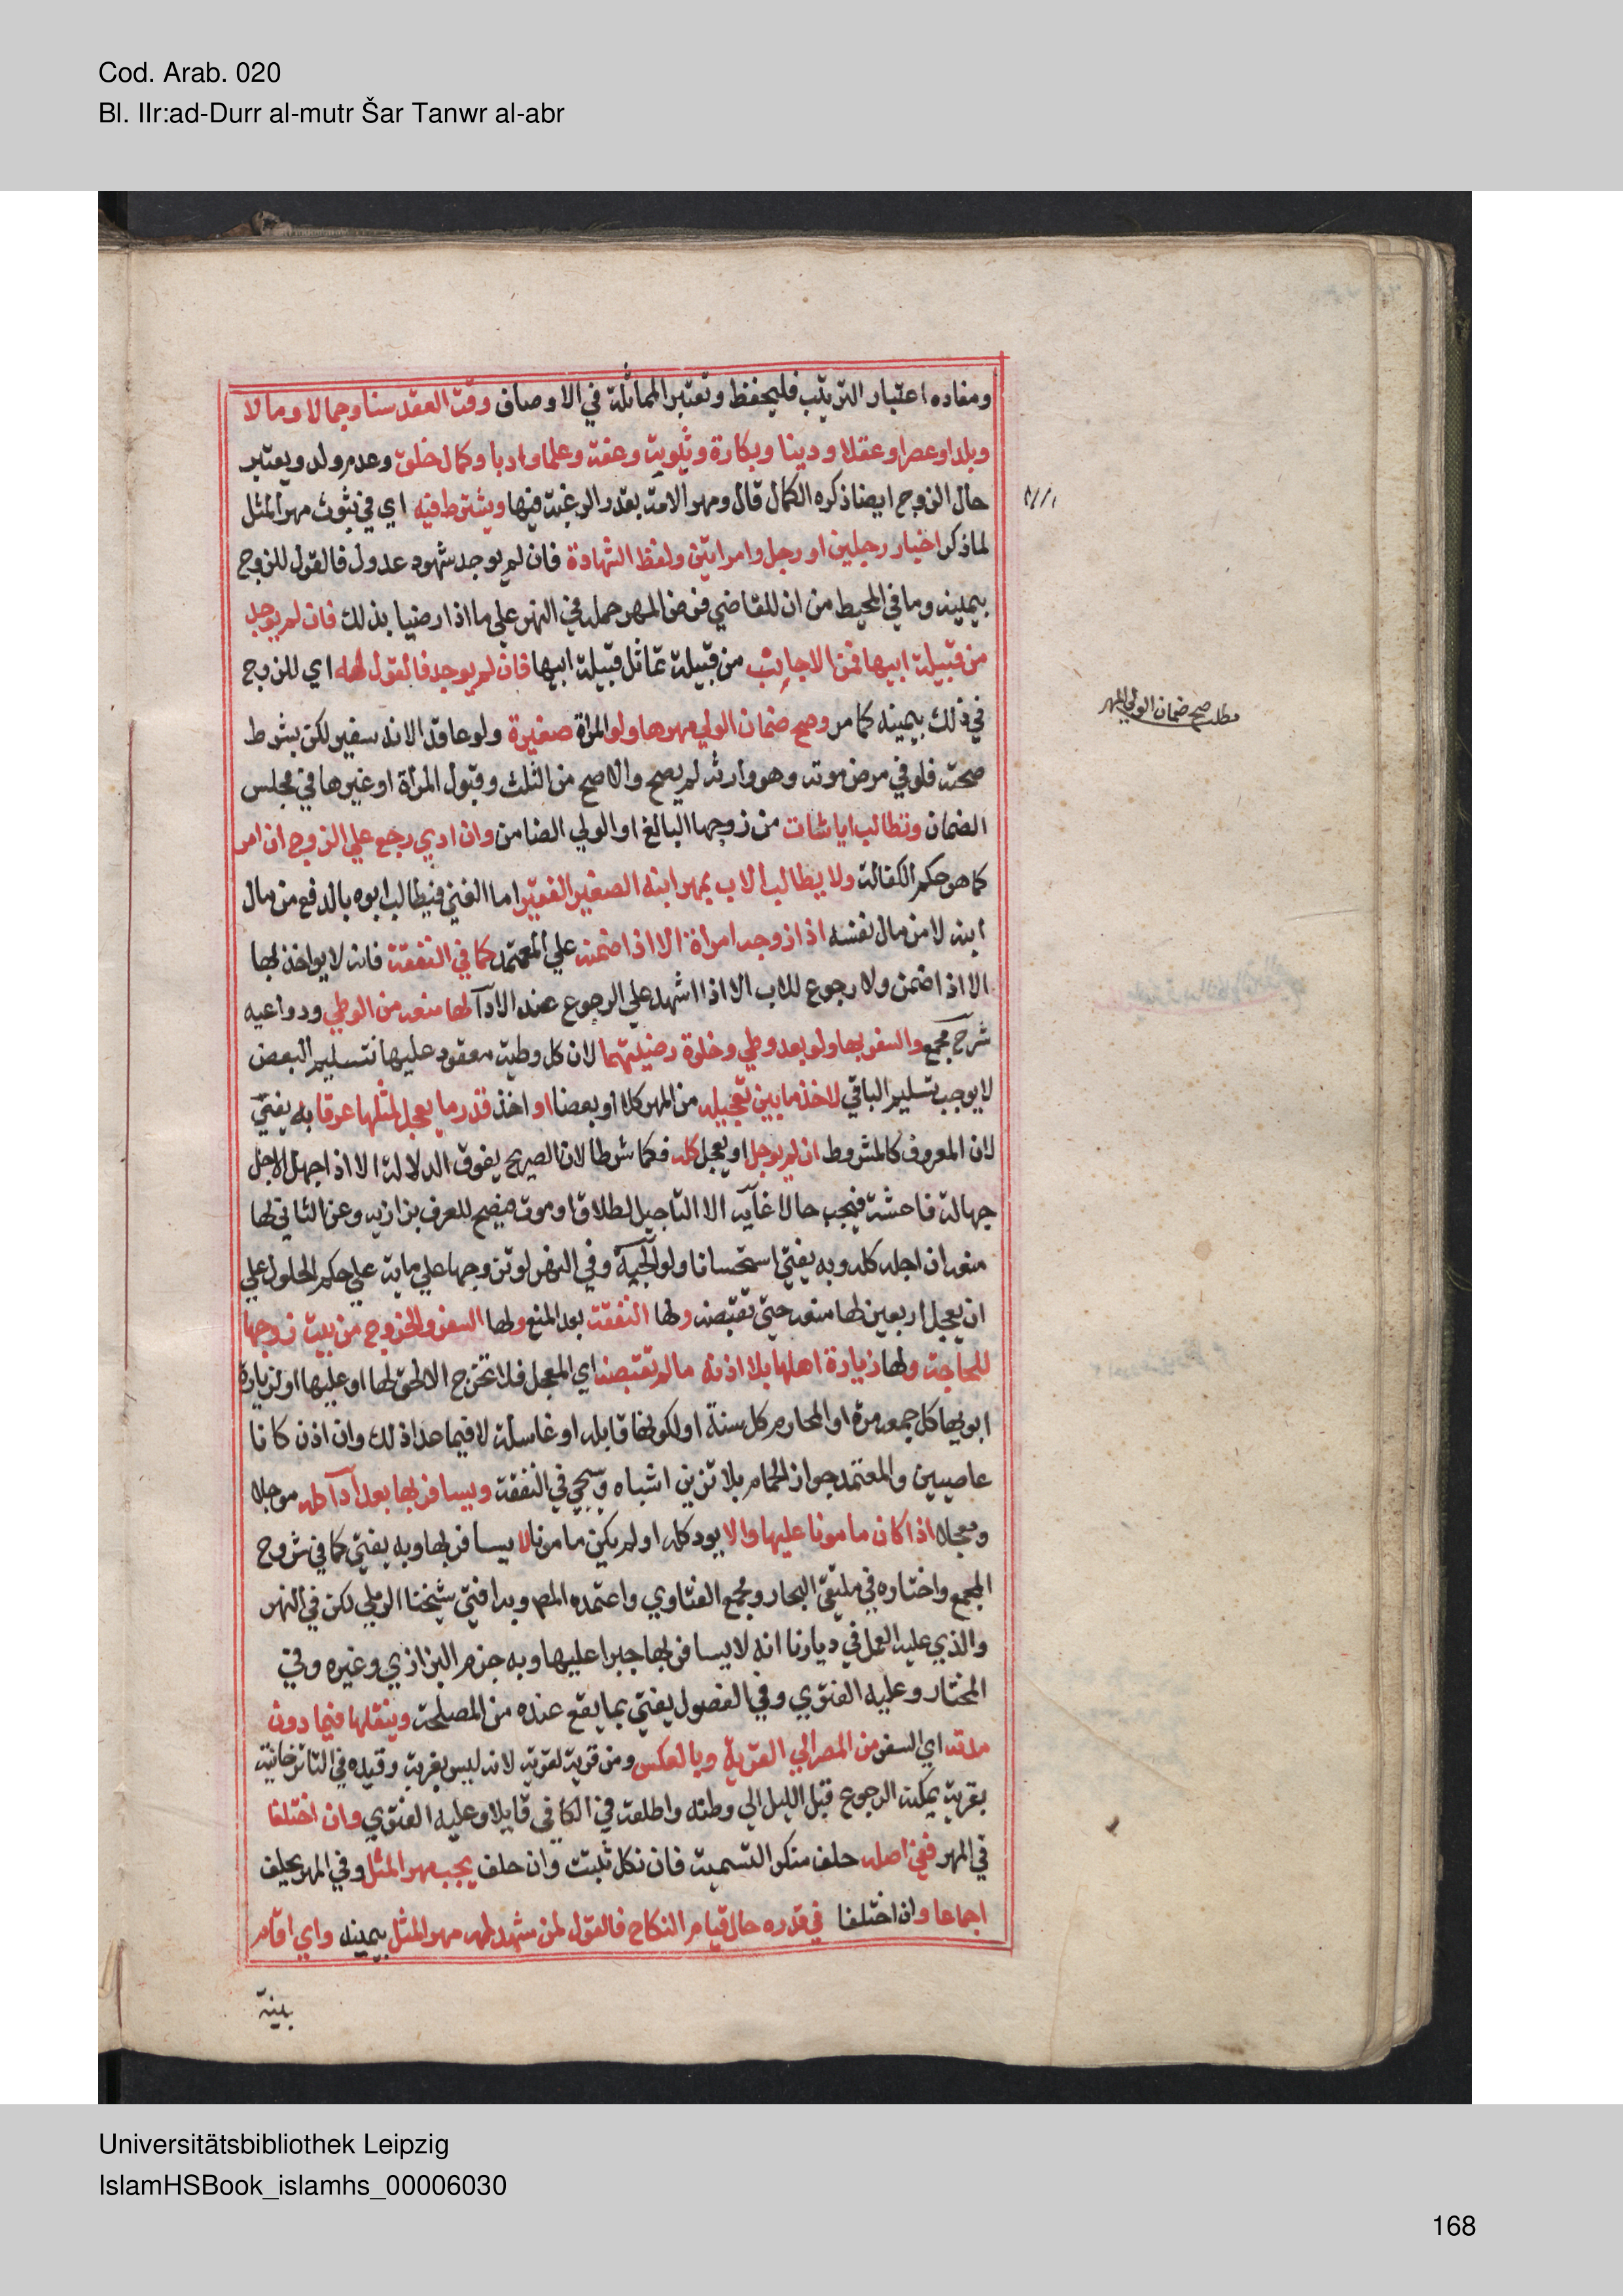 Cod. Arab. 020
Bl. IIr:ad-Durr al-mutr Šar Tanwr al-abr
ومفاده اعتبار الترتيب فليحفظ وتعتبر المماثلة في الاوصاف وقت العقد سنا وجمالا ومالا
وبلدا وعصرا وعقلا ودينا وبكارة وثيوبة وعفة وعلما وادبا وكمال خلق وعدم ولد ويعتبر
حال الزوج ايضا ذكره الكمال قال ومهر الامة بقدر الرغبة فيها ويشترط فيه اي في ثبوت مهر المثل
لما ذكر اخبار رجلين او رجل وامراتين ولفظ الشهادة فان لم يوجد شهود عدول فالقول للزوج
بيمينه وما في المحيط من ان للقاضي فرض المهر حمله في النهر على ما اذا رضيا بذلك فان لم يوجد
من قبيلة ابيها فمن الاجانب من قبيلة تماثل قبيلة ابيها فان لم يوجد فالقول له اي للزوج
في ذلك بيمينه كما مر وصح ضمان الولي مهرها ولو المراة صغيرة ولو عاقدا لانه سفير لكن بشرط
مطلب صح ضمان الولي المهر
صحته فلو في مرض موته وهو وارثه لم يصح والا صح من الثلث وقبول المرأة او غيرها في مجلس
الضمان وتطالب ايا شاءت من زوجها البالغ او الولي الضامن وان ادي رجع علي الزوج ان امر
كما هو حكم الكفالة ولا يطالب الاب بمهر ابنه الصغير الفقير اما الغني فيطالب ابوه بالدفع من مال
ابنه لا من مال نفسه اذا زوجه امراة الا اذا ضمنه علي المعتمد كما في النفقة فانه لا يواخذ بها
الا اذا ضمن ولا رجوع للاب الا اذا اشهد علي الرجوع عند الادآ لها منعه من الوطي ودواعيه
شرح مجمع والسفر بها ولو بعد وطي وخلوة رضيتهما لان كل وطية معقود عليها فتسليم البعض
لا يوجب تسليم الباقي لاخذ ما بين تعجيله من المهر كلا او بعضا او اخذ قدر ما يعجل لمثلها عرفا به يفتي
لان المعروف كالمشروط ان لم يوجل او يعجل كله فكما شرطا لان الصريح يفوق الدلالة الا اذا جهل الاجل
جهالة فاحشة فيجب حالا غاية الا التاجيل لطلاق او موت فيصح للعرف بزازيه وعن الثاني لها
منعه ان اجله كله وبه يفتي استحسانا ولوالجية وفي النهر لو تزوجها علي ماية علي حكم الحلول علي
ان يعجل اربعين لها منعه حتي تقبضه ولها النفقة بعد المنع ولها السفر والخروج من بيت زوجها
للحاجة ولها زيارة اهلها بلا اذنه ما لم تقبضه اي المعجل فلا تخرج الا لحق لها او عليها او لزيارة
ابويها كل جمعه مرة او المحارم كل سنة او لكونها قابله او غاسلة لا فيما عدا ذلك وان اذن كانا
عاصيين والمعتمد جواز الحمام بلا تزين اشباه وسيجي في النفقة ويسافر بها بعد آدآ كله موجلا
ومعجلا اذا كان مامونا عليها والا يود كله او لم يكن مامونا لا يسافر بها وبه يفتي كما في شروح
المجمع واختاره في ملتقي البحار ومجمع الفتاوي واعتمده المص وبه افتي شيخنا الرملي لكن في النهر
والذي عليه العمل في ديارنا انه لا يسافر بها جبرا عليها وبه جزم البزازي وغيره وفي
المختار وعليه الفتوي وفي الفصول يفتي بما يقع عنده من المصلحة وينقلها فيما دون
مدته اي السفر من المصر الي القرية وبالعكس ومن قرية لقرية لانه ليس بغربة وقيده في التاترخانية
بقرية يمكنه الرجوع قبل الليل الي وطنه واطلقه في الكافي قايلا وعليه الفتوي وان اختلفا
في المهر ففي اصله حلف منكر التسمية فان نكل ثبت وان حلف يجب مهر المثل وفي المهر يحلف
اجماعا وان اختلفا في قدره حال قيام النكاح فالقول لمن شهد له مهر المثل بيمينه واي اقام
بينة
Universitätsbibliothek Leipzig
IslamHSBook_islamhs_00006030
168